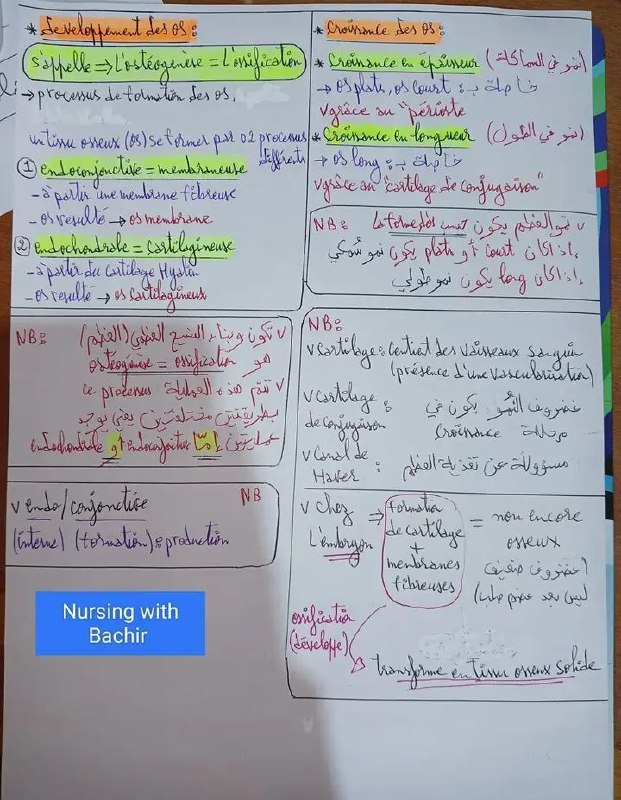 * développement des os :
s'appelle ⇒ l'ostéogenèse = l'ossification
→ processus de formation des os,
un tissu osseux (os) se former par 02 processus
différents
① endoconjonctive = membraneuse
- à partir une membrane fibreuse
- os resulté → os membrane
② endochondrale = cartilagineuse
- à partir du cartilage Hyalin
- os resulté → os cartilagineux
NB :
√ تكون وبناء النسيج العظمي (العظم)
هو ostéogénèse = ossification
√ تتم هذه العملية ce processus
بطريقتين مختلفتين يعني يوجد
عمليتين إما endoconjoctive أو endochondrale
NB
√ endo/conjonctive
(interne) (formation) : production
Nursing with
Bachir
* Croissance des os :
* Croissance en épaisseur (نمو في السماكة)
→ os plats, os court خاصة بـ :
√ grâce au "périoste
* Croissance en longueur (نمو في الطول)
→ os long خاصة بـ :
√ grâce au "cartilage de conjugaison"
NB : √ نمو العظم يكون حسب la forme des os
إذا كان court أو plats يكون نمو سمكي
إذا كان long يكون نمو طولي
NB :
√ Cartilage : contient des vaisseaux sanguin
(présence d'une vascularisation)
√ cartilage de conjugaison : غضروف النمو يكون في
مرحلة croissance
√ Canal de Haver : مسؤولة عن تغذية العظم
√ chez l'embryon ⇒ formation de cartilage + membranes fibreuses = non encore osseux
(غضروف خفيف
ليس بعد عظم صلب)
ossification
(développe)
transforme en tissu osseux solide